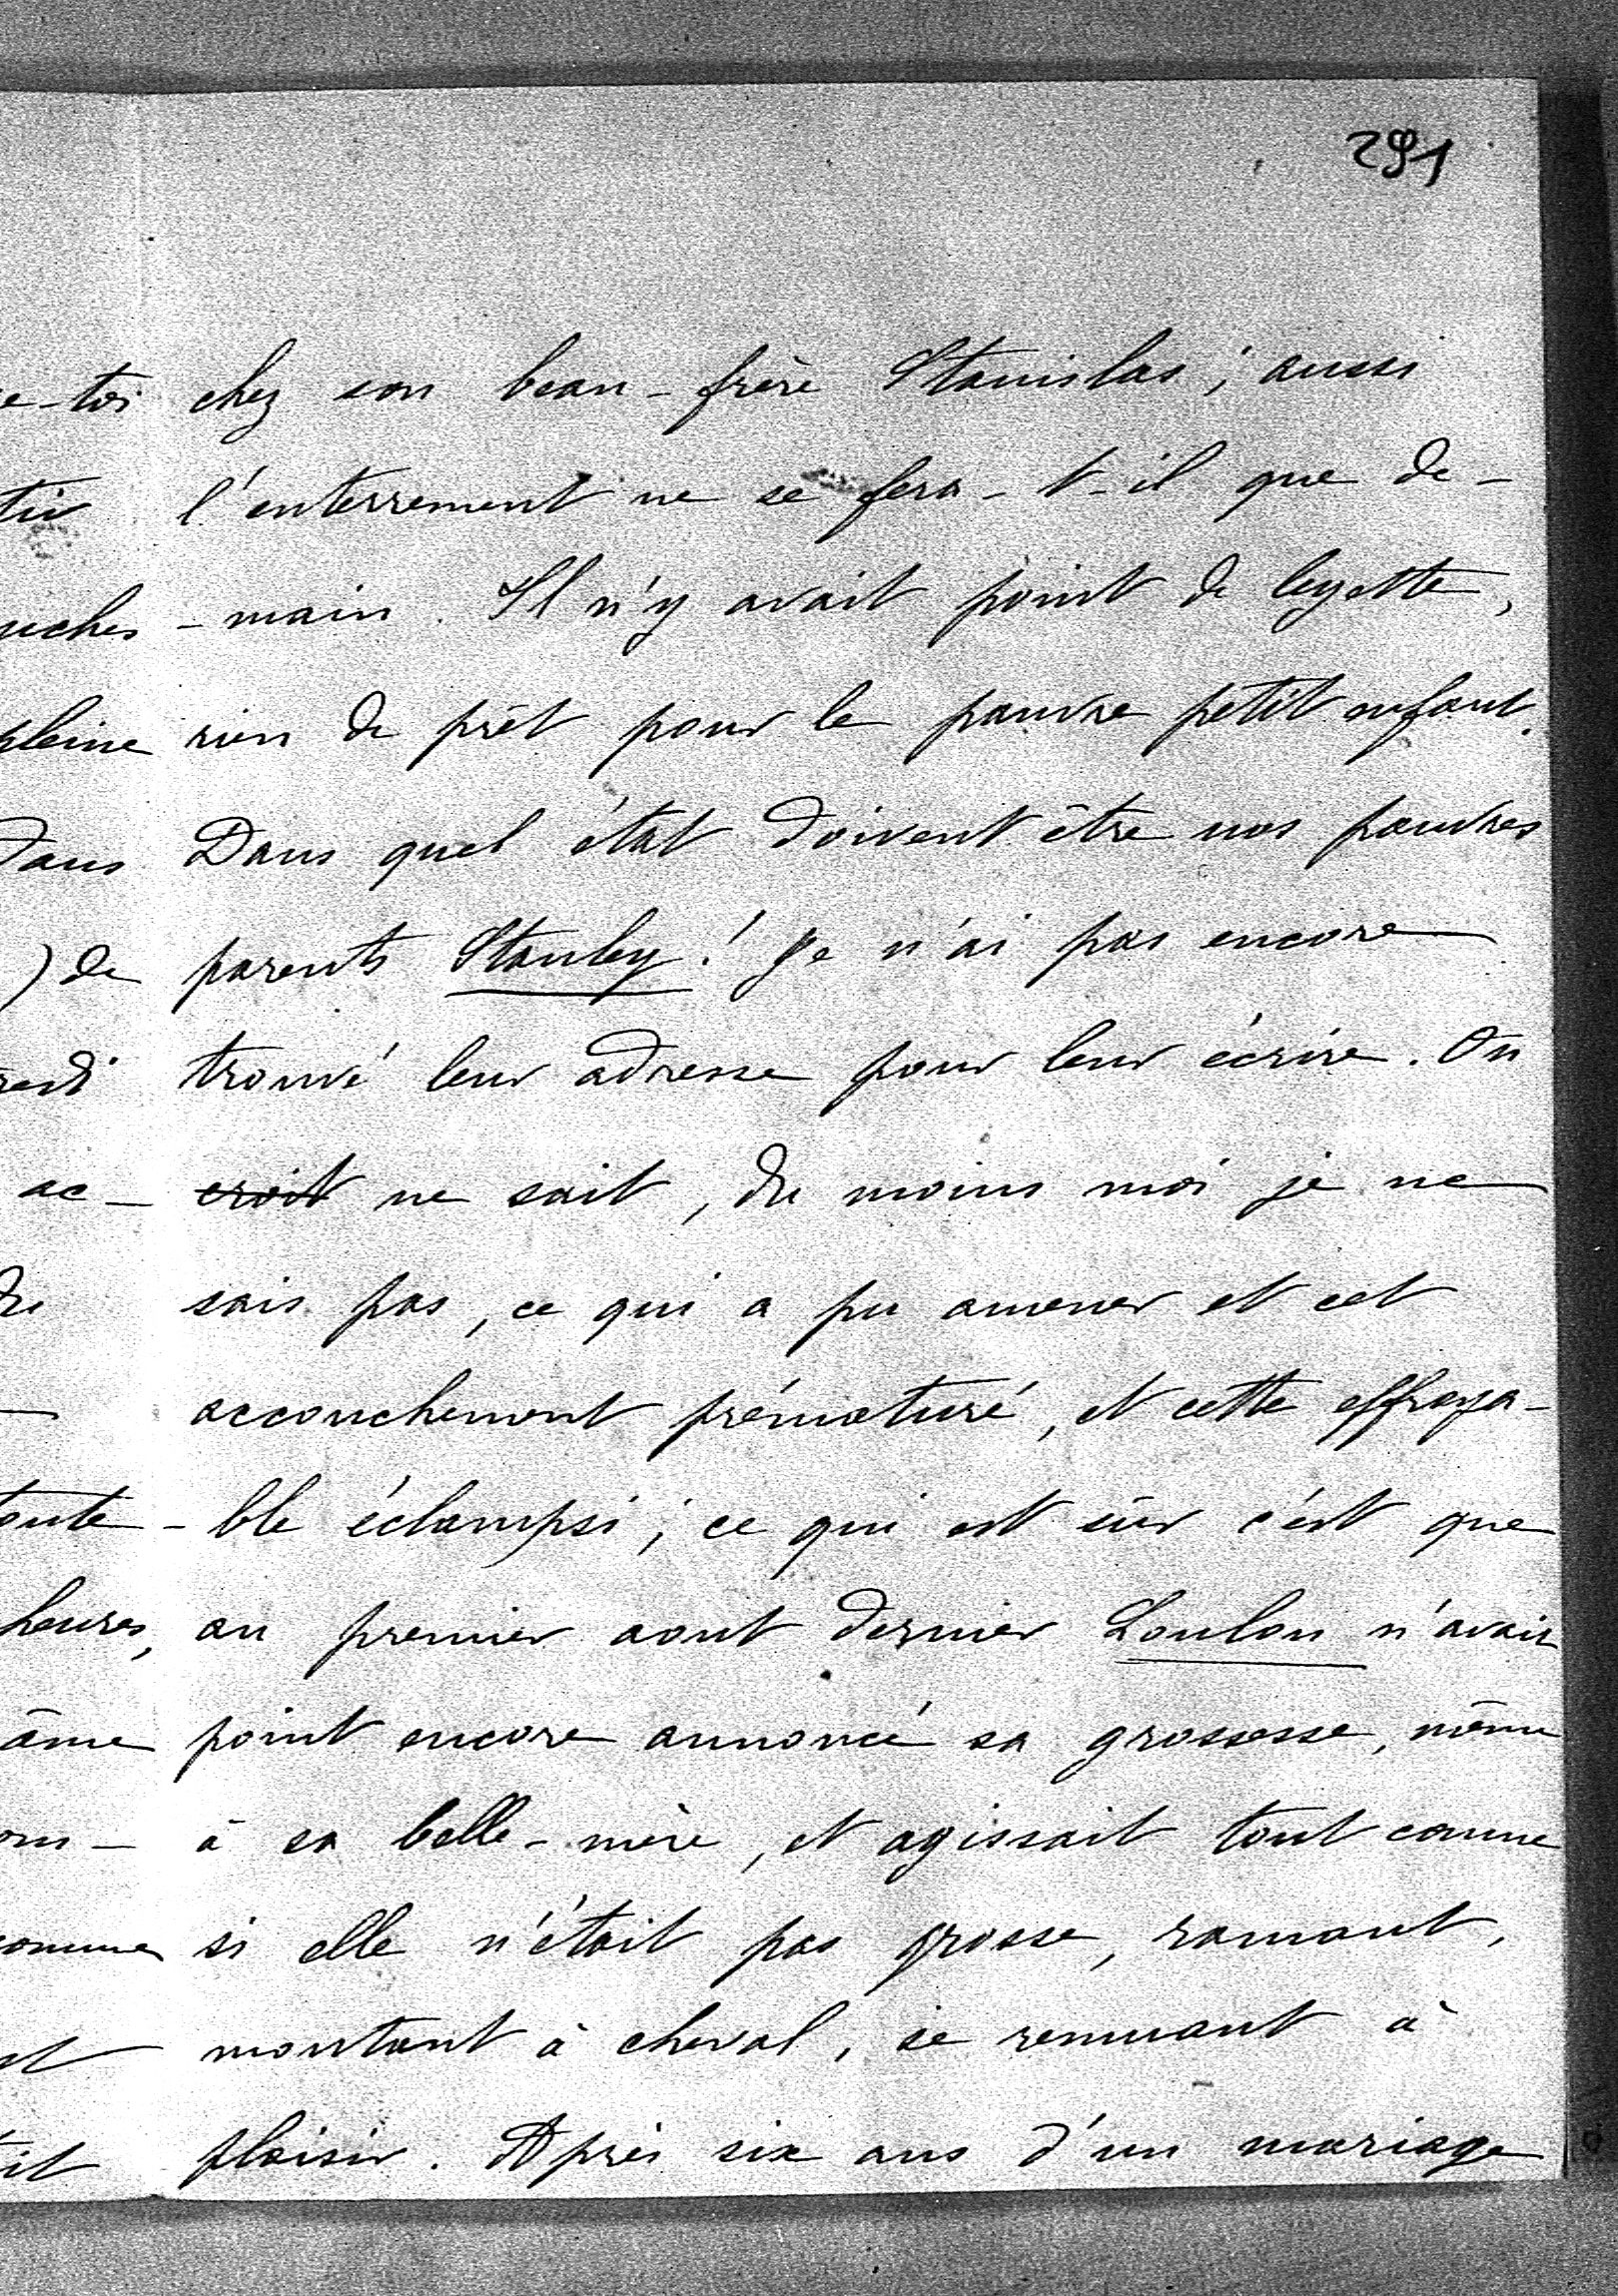 291
chez son beau-frère Stanislas ; aussi
l'enterrement ne se fera-t-il que de-
-main. Il n'y avait point de leyette,
rien de prêt pour le pauvre petit enfant.
Dans quel état doivent être nos pauvres
parents Stanley ! Je n'ai pas encore
trouvé leur adresse pour leur écrire. On
croit ne sait, du moins moi je ne
sais pas, ce qui a pu amener et cet
accouchement prématuré, et cette effroya-
-ble éclampsi ; ce qui est sûr c'est que
au premier aout dernier Loulou n'avait
point encore annoncé sa grossesse, même
à sa belle-mère, et agissait tout comme
si elle n'était pas grosse, ramant,
montant à cheval, se remuant à
plaisir. Après six ans d'un mariage
e-toi
uches
pleine
dans
) de
ac-
du
toute
heures,
âme
comme